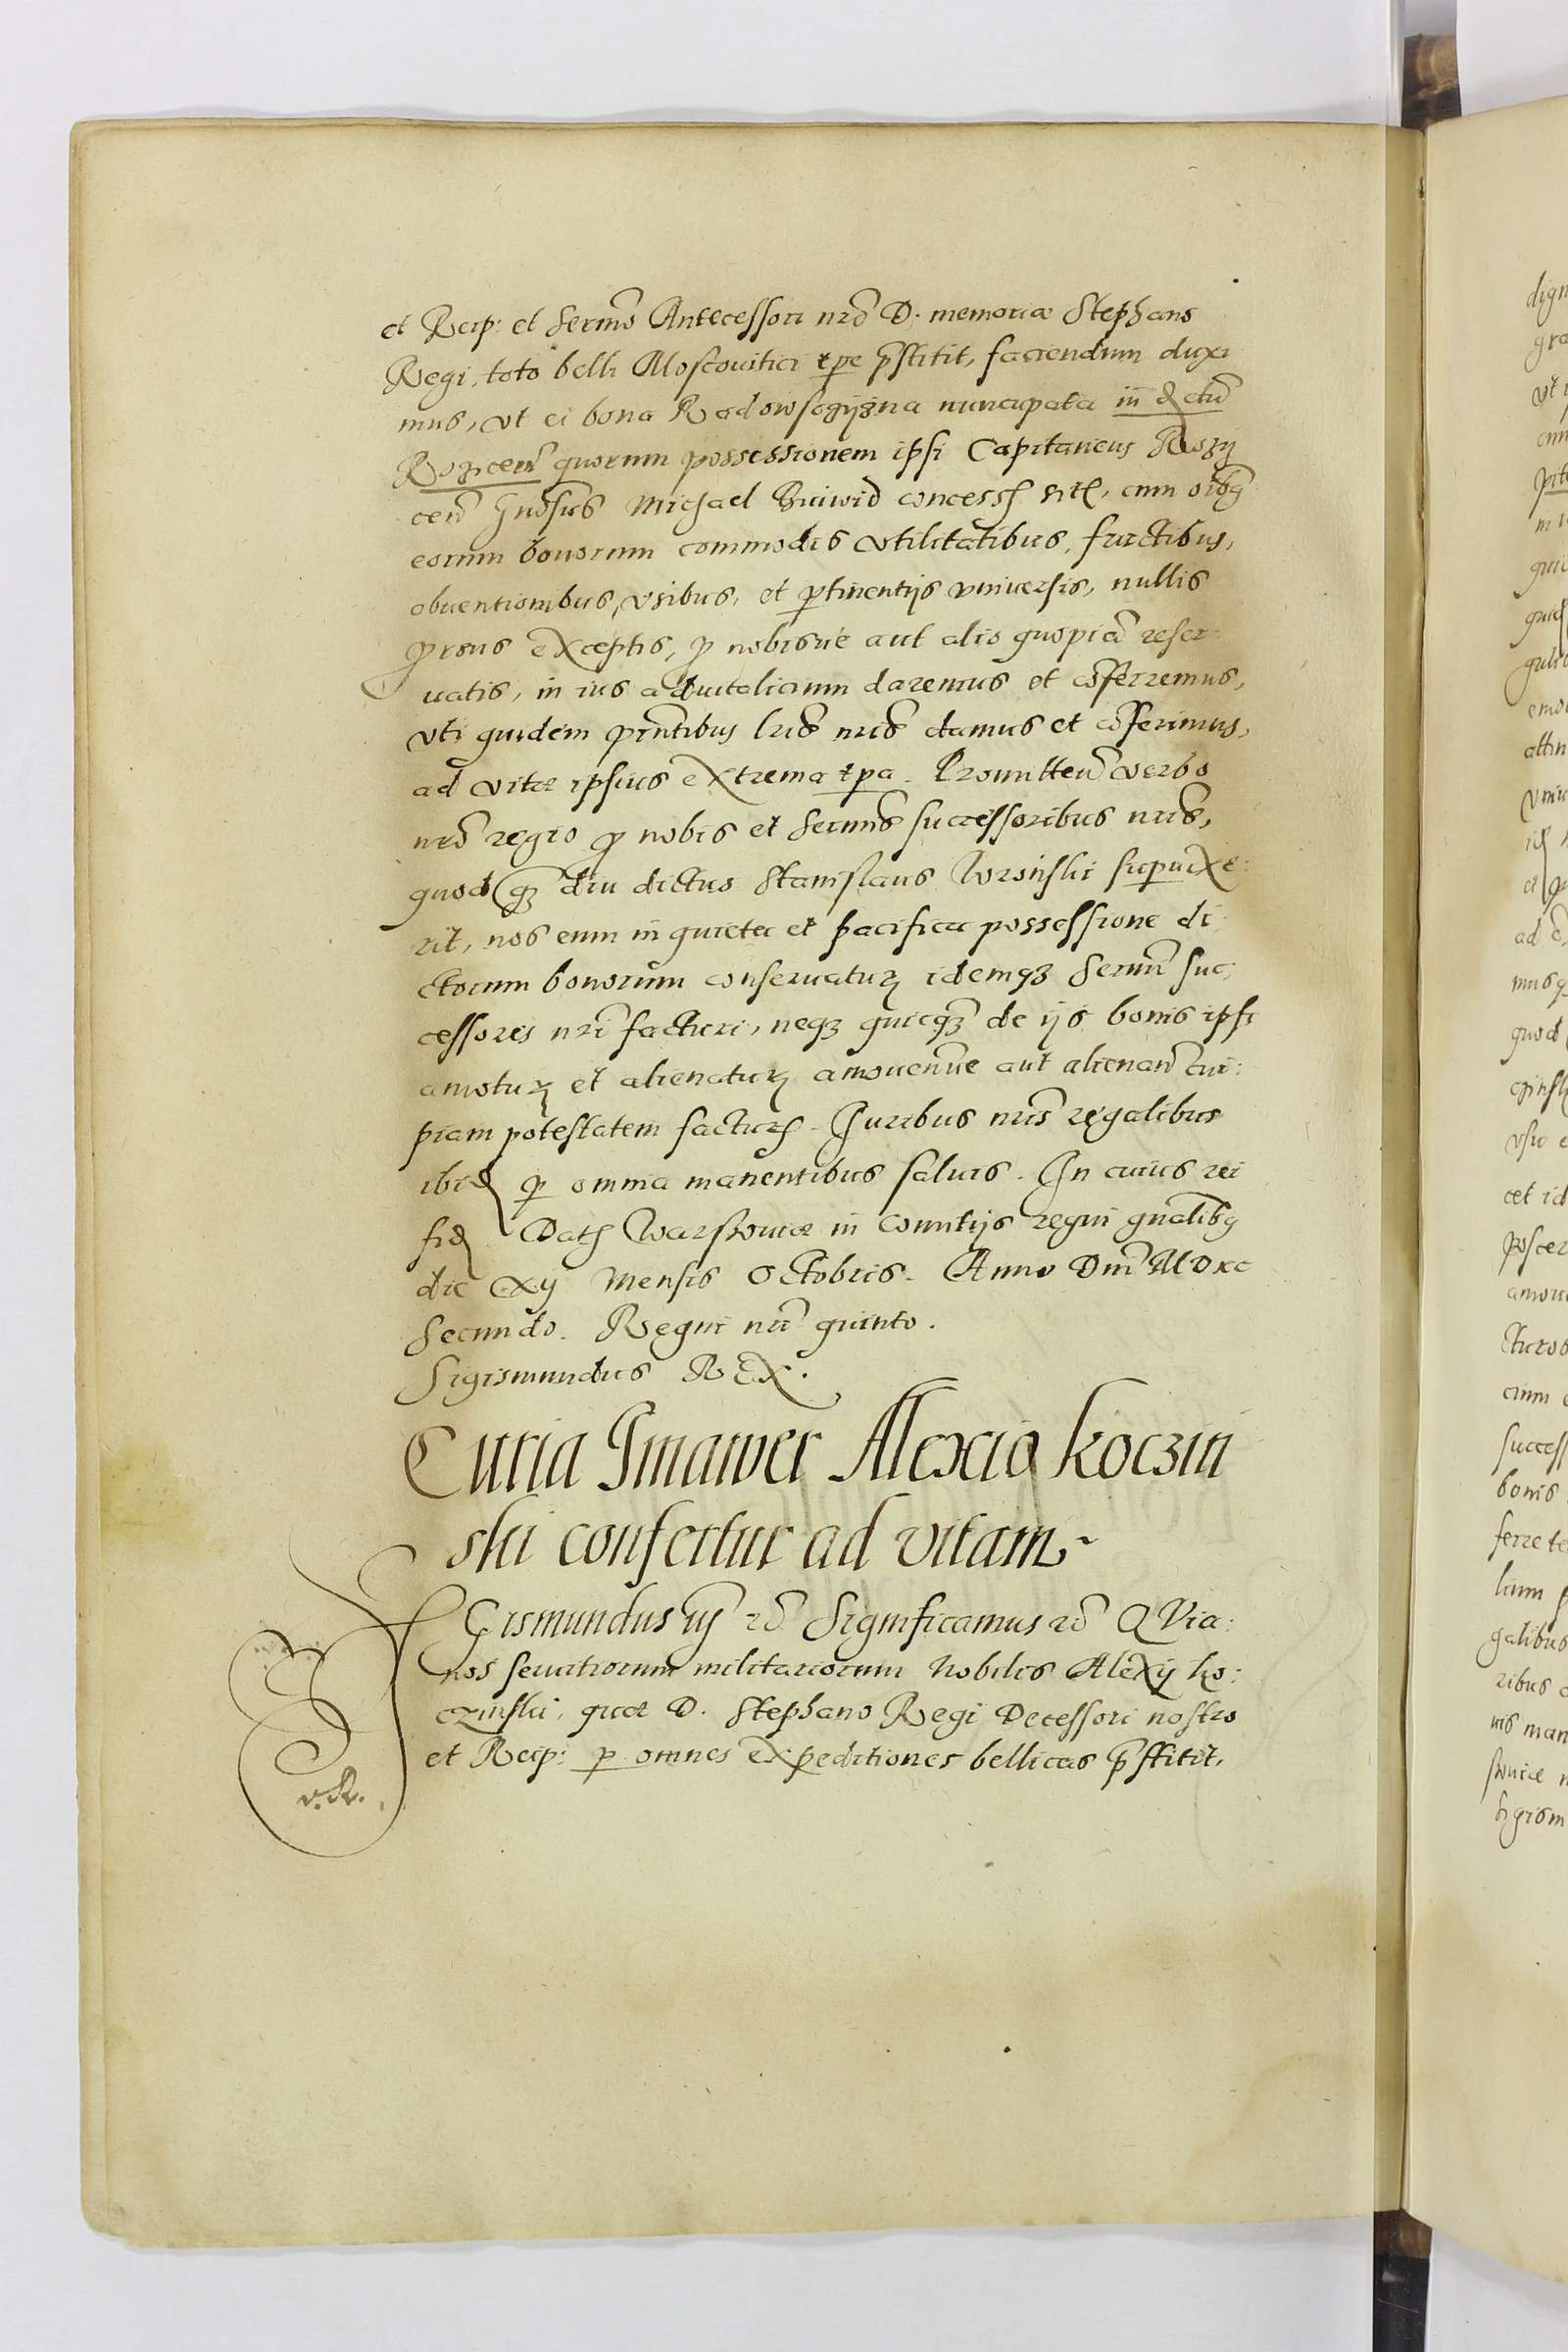 et Reip: et Sermo Antecessori nro D. memoriæ Stephano
Regi, toto belli Moscouitici tpe pstitit, faciendum duxi
mus, vt ei bona nuncupata in
Rozicen quorum possessionem ipsi Capitaneus Rozy
cen Gnosus Michael concess, cum oibq
eorum bonorum commodis vtilitatibus, fructibus,
obuentionibus, vsibus, et ptinentijs vniuersis, nullis
prorsus exceptis, p nobisue aut alio quopiã reser:
uatis, in ius aduitalicium daremus et cõferremus,
vti quidem pntibus lris nris damus et cõferimus,
ad vitæ ipsius extrema tpa. Promitten verbo
nro regio p nobis et Sermis successoribus nris,
quod qz diu dictus Stanislaus Wronski supuixe:
rit, nos eum in quieta et pacifica possessione di
ctorum bonorum conseruatur idemqz Sermi suc:
cessores nri facturi, neqz quicqz de ijs bonis ipsi
amotur et alienatur amouenve aut alienan cui:
piam potestatem factur. Juribus nris regalibus
ibid p omnia manentibus saluis. In cuius rei
fid Dat Warssouiæ in Comitijs regni gnalibq
die xij Mensis Octobris. Anno Dni MDxc
Secundo. Regni nri quinto.
Sigismundus REX.
Curia Alexio Koczin
ski confertur ad vitam
Sigismundus iij rc Significamus rc Q Via:
nos seruitiorum militariorum Nobilis Alexij Ko:
czinski, quæ D. Stephano Regi Decessori nostro
et Reip: p omnes expeditiones bellicas pstitit,